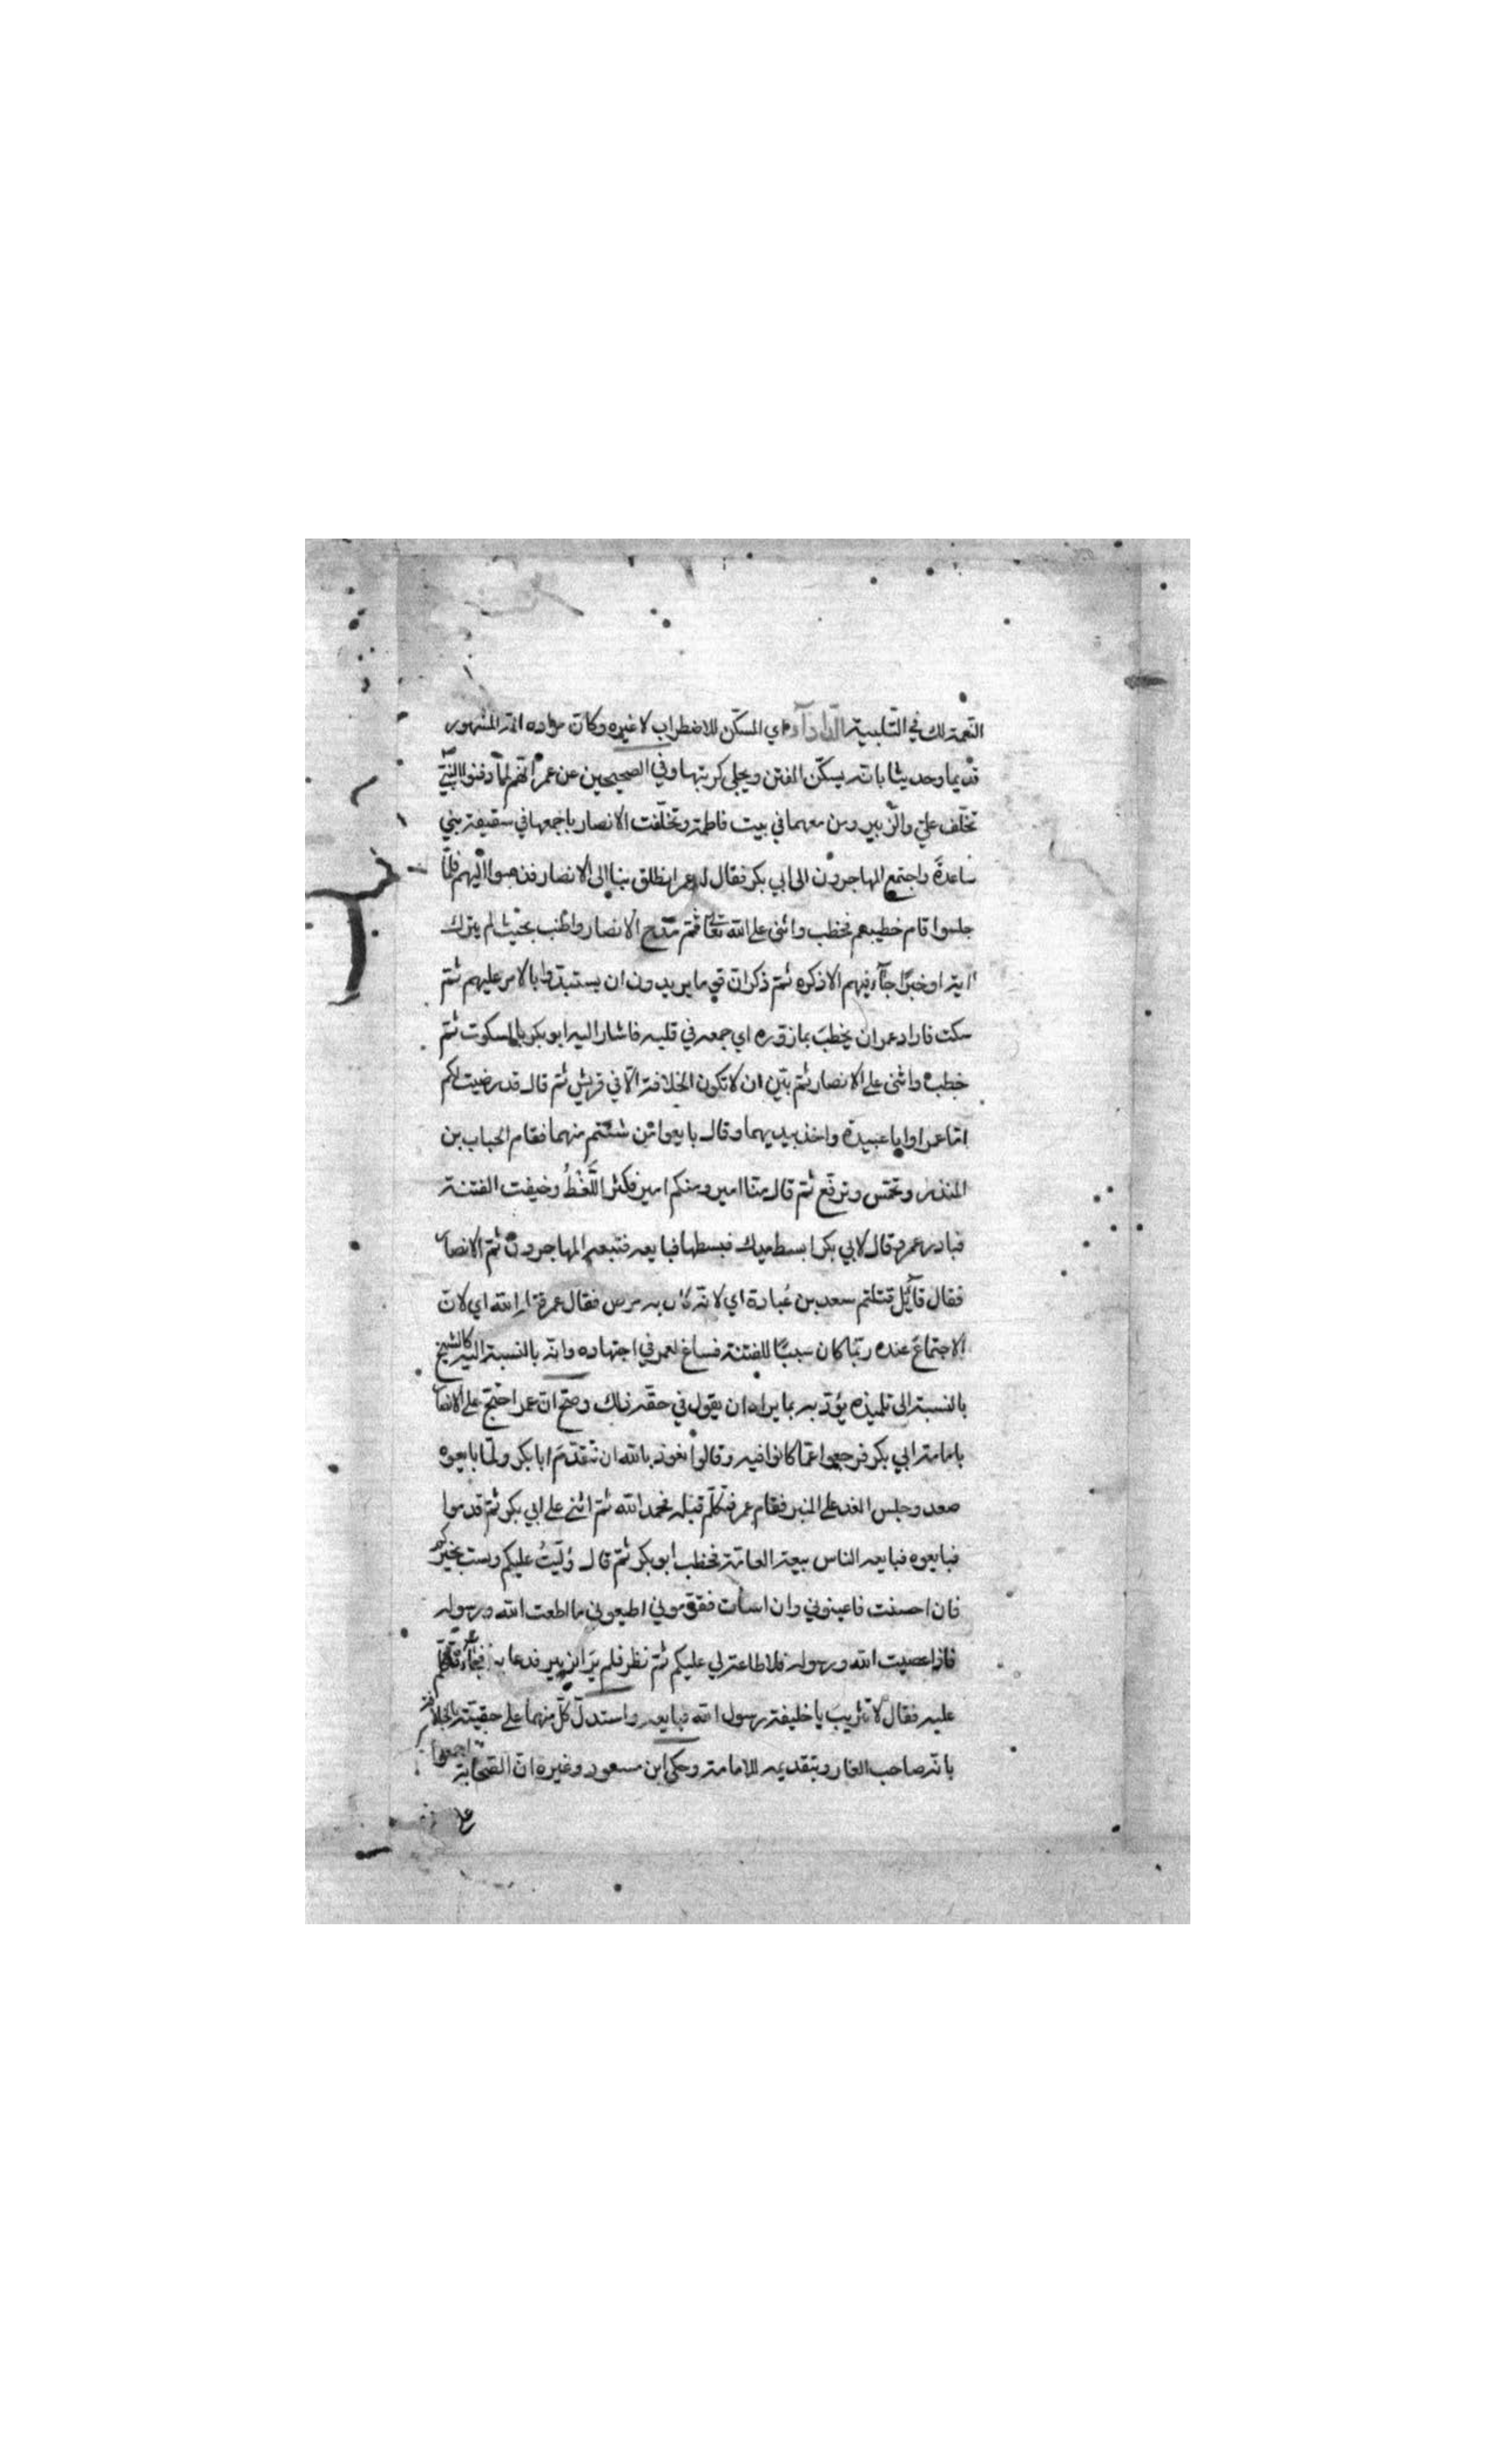 النّعمة لك في التّلبية الدّأدآء اي المسكّن للاضطراب لا غيره وكان مراده انه المشهور
قديما وحديثا بانه يسكّن الفتن ويجلي كربتها وفي الصحيحين عن عمر انّهم لمّا دفنوا النبيّ
تخلّف عليّ والزّبير ومن معهما في بيت فاطمة وتخلّفت الانصار باجمعها في سقيفة بني
ساعدة واجتمع المهاجرون الى ابي بكر فقال له عمر انطلق بنا الى الانصار فذهبوا اليهم فلمّا
جلسوا قام خطيبهم فخطب واثنى على الله تعالى ثم مدح الانصار واطنب بحيث لم يترك
اية او خبرًا جآء فيهم الا ذكره ثمّ ذكر ان قوما يريدون ان يستبدّوا بالامر عليهم ثمّ
سكت فاراد عمر ان يخطب بما زوّره اي جمعه في قلبه فاشار اليه ابو بكر بالسكوت ثمّ
خطب واثنى على الانصار ثم بيّن ان لا تكون الخلافة الّا في قريش ثم قال قد رضيت لكم
امّا عمر او ابا عبيدة واخذ بيديهما وقال بايعوا من شئتم منهما فقام الحباب بن
المنذر وتحمّس وترفّع ثم قال منّا امير ومنكم امير فكثر اللَّغَطُ وخيفت الفتنة
فبادر عمر وقال لابي بكر ابسط يدك فبسطها فبايعه فتبعه المهاجرون ثمّ الانصار
فقال قآئل قتلتم سعد بن عُبادة اي لانّه كان به مرض فقال عمر قتله الله اي لانّ
الاجتماع عنده ربّما كان سببًا للفتنة فساغ لعمر في اجتهاده وانّه بالنسبة اليه كالشيخ
بالنسبة الى تلميذه يؤدّبه بما يراه ان يقول في حقّه ذلك وصحّ انّ عمر احتجّ على الانصار
بامامة ابي بكر فرجعوا عمّا كانوا فيه وقالوا نعوذ بالله ان نتقدّم ابا بكر ولمّا بايعوه
صعد وجلس الغد على المنبر فقام عمر فتكلّم قبله فحمد الله ثم اثنى على ابي بكر ثم قدموا
فبايعوه فبايعه الناس بيعة العامّة فخطب ابو بكر ثمّ قال وُلّيتُ عليكم ولست بخيركم
فان احسنت فاعينوني وان اسأت فقوّموني اطيعوني ما اطعت الله ورسوله
فاذا عصيت الله ورسوله فلا طاعة لي عليكم ثم نظر فلم يرَ الزبير فدعا به فجآء
عليه فقال لا تثريب يا خليفة رسول الله فبايعه واستدلّ كلّ منهما على حقيّته بالخلافة
بانّه صاحب الغار وبتقديمه للامامة وحكى ابن مسعود وغيره انّ الصّحابة اجمعوا
على